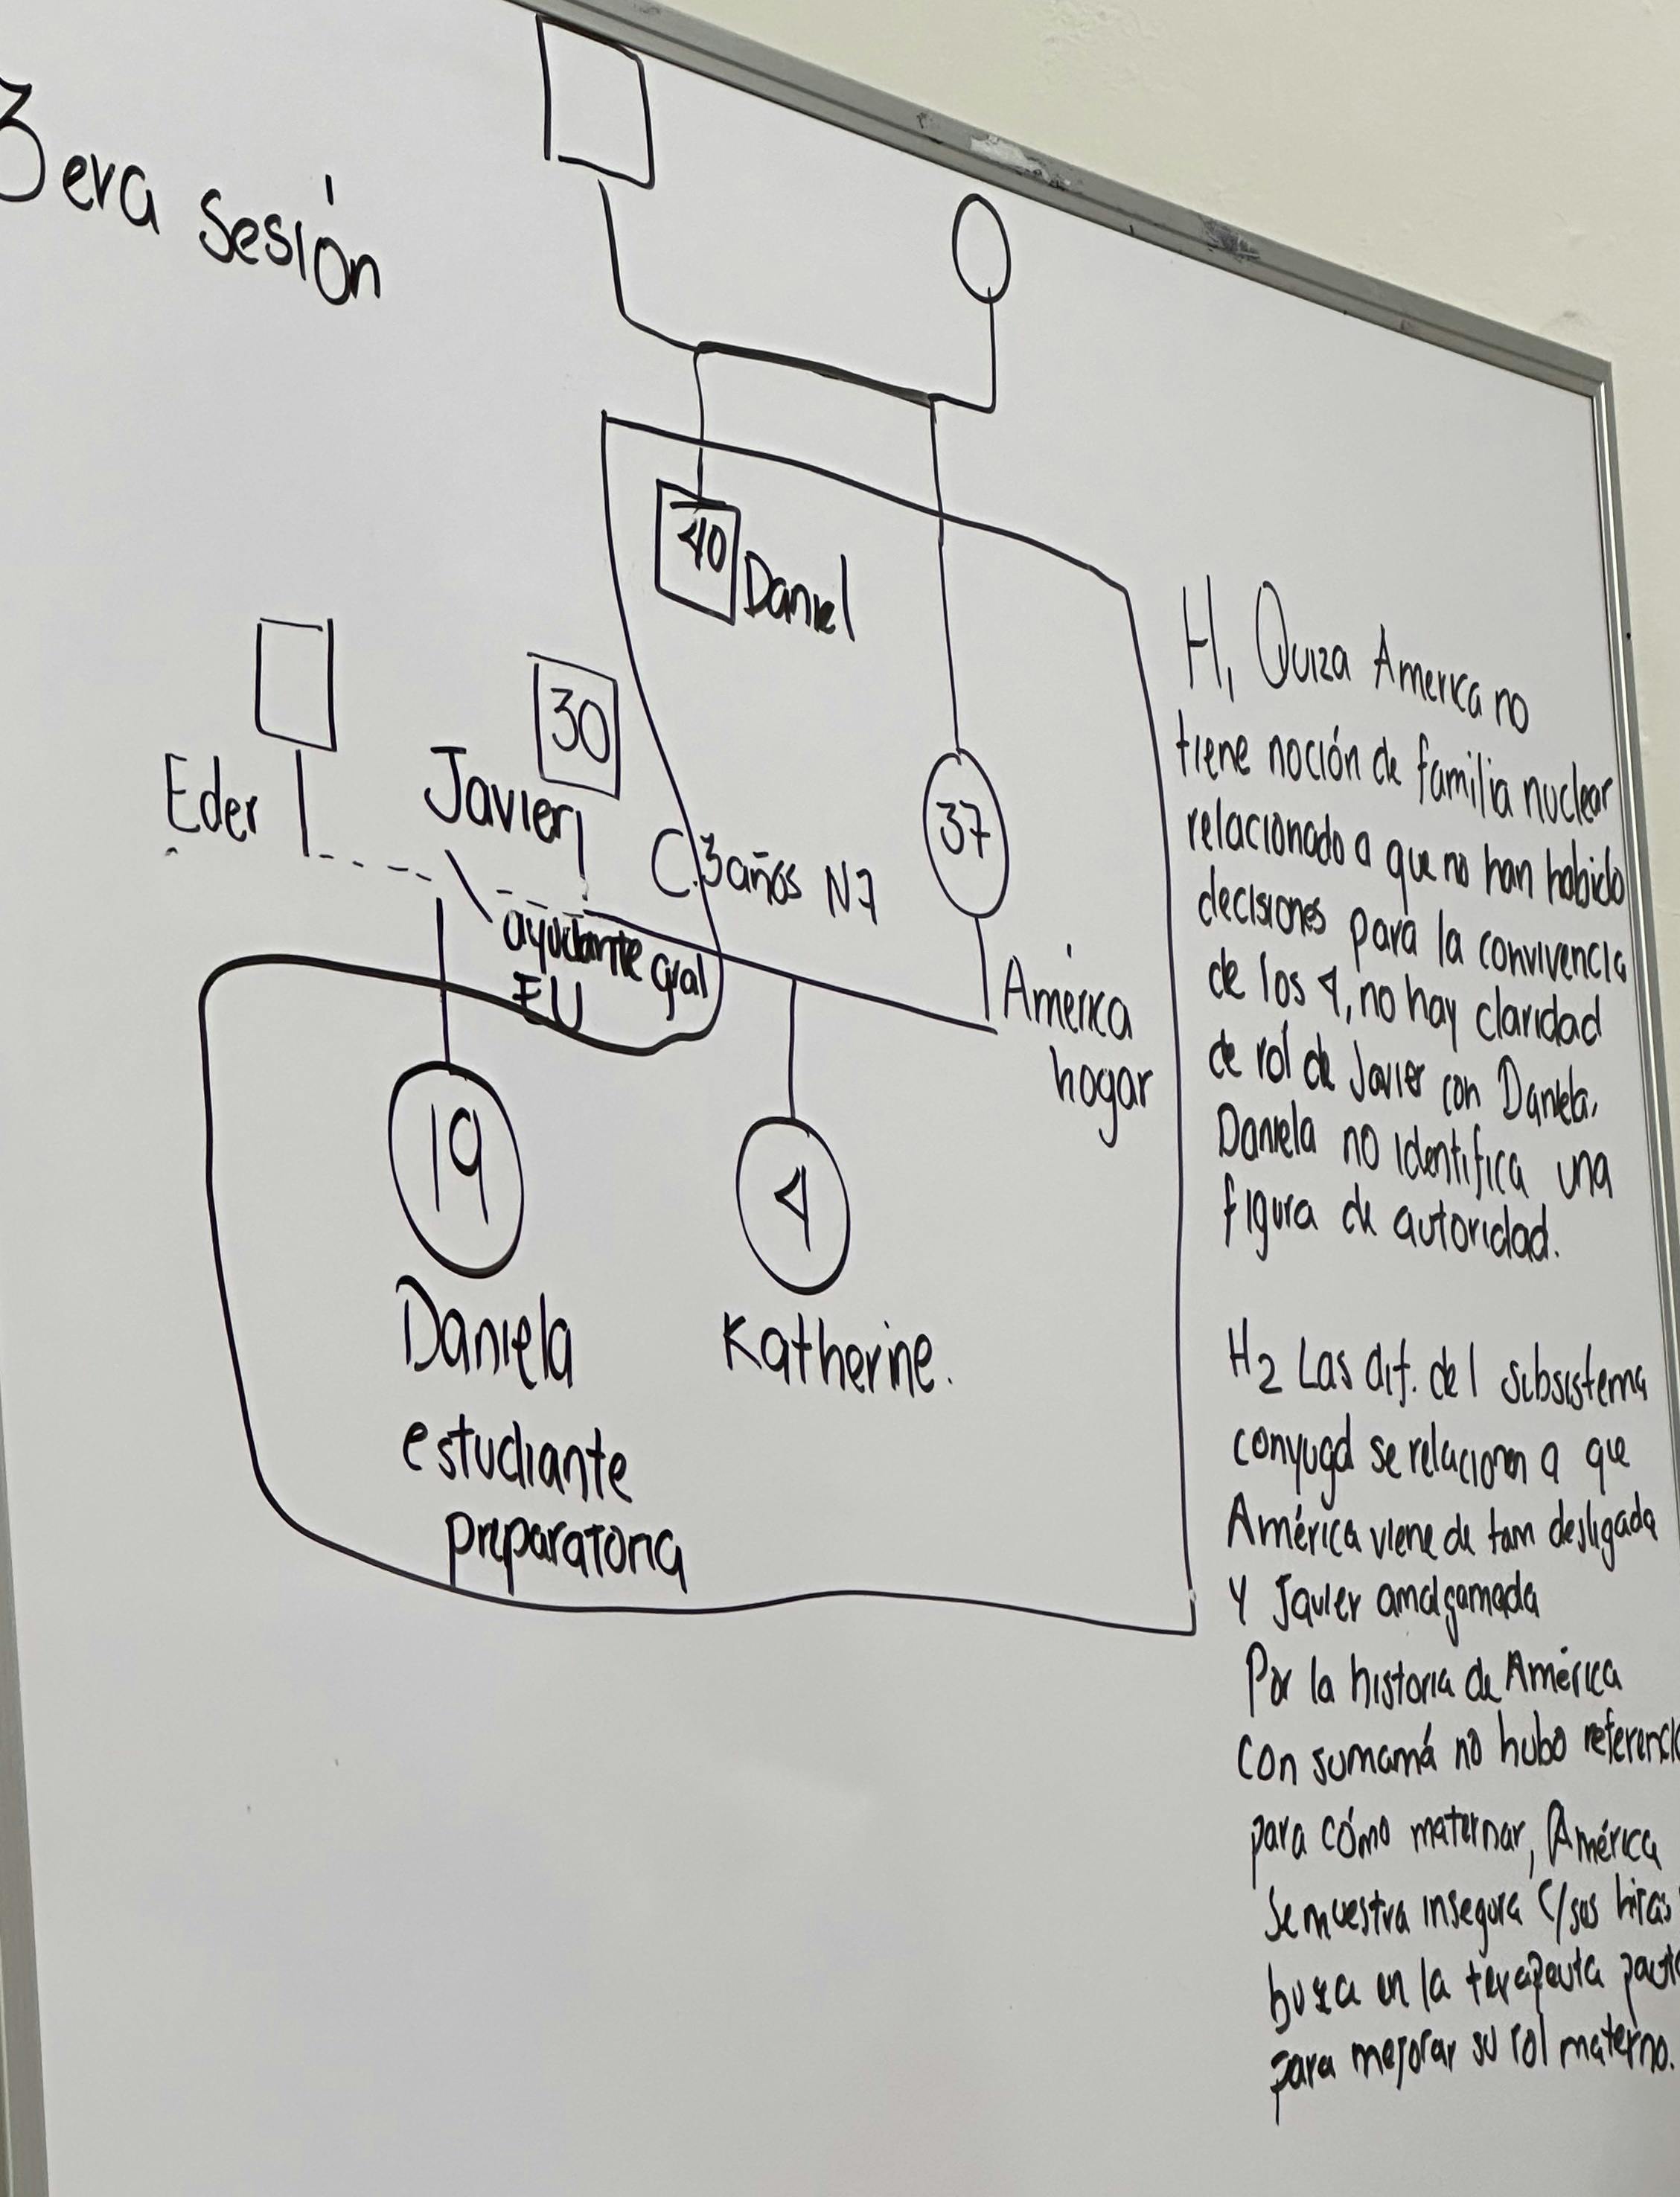 3era sesión
40 Daniel
30
Eder
Javier
37
C.3años N7
ayudante gral
EU
América
hogar
19
4
Daniela
Katherine.
estudiante
preparatoria
H1 Quiza America no
tiene noción de familia nuclear
relacionado a que no han habido
decisiones para la convivencia
de los 4, no hay claridad
de rol de Javier con Daniela.
Daniela no identifica una
figura de autoridad.
H2 Las dif. del subsistema
conyugal se relacionan a que
América viene de fam desligada
Y Javier amalgamada
Por la historia de América
con sumamá no hubo referencia
para cómo maternar, América
se muestra insegura c/sus hijas
busca en la terapeuta
para mejorar su rol materno.